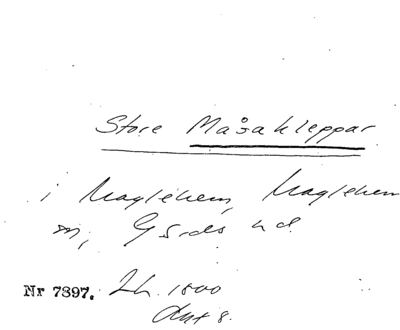 Store Måsakleppar
i Maglehem, Maglehem
sn, Gärds hd.
Nr 7397. Lh. 1800
Akt 8.